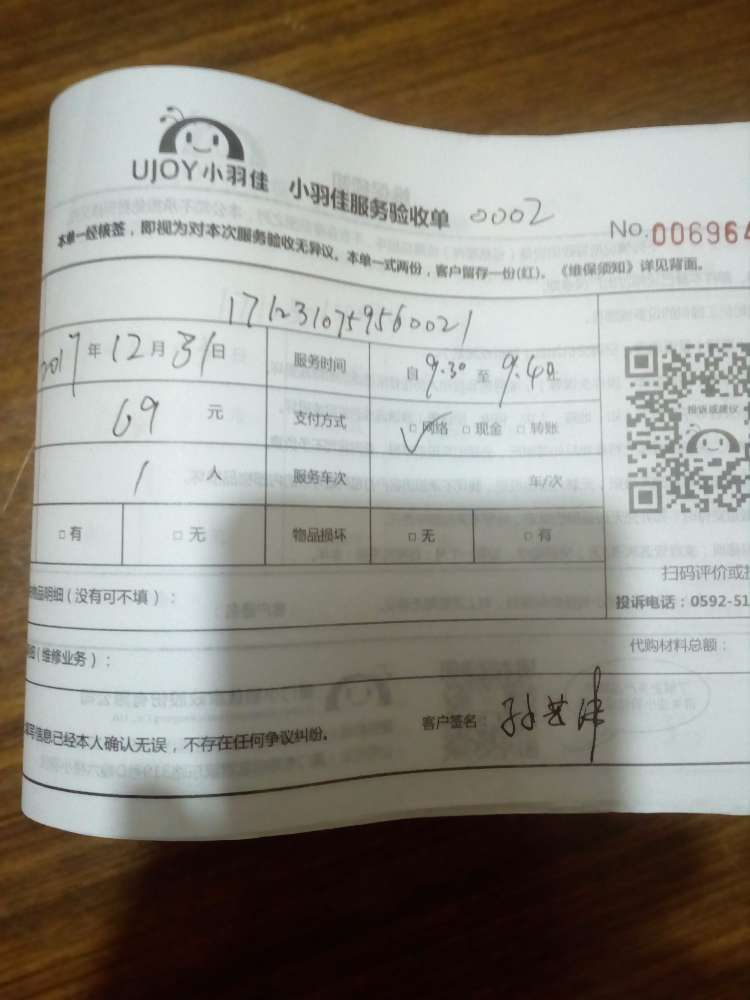 UJOY小羽佳 小羽佳服务验收单 0002
No.006964
本单一经核签，即视为对本次服务验收无异议。本单一式两份，客户留存一份(红)。《维保须知》详见背面。
1712310759560021
2017年12月31日 服务时间 自9.30至9.40
69元 支付方式 □网络 □现金 □转账
1人 服务车次 车/次
□有 □无 物品损坏 □无 □有
投诉或建议
扫码评价或
物品明细（没有可不填）：
投诉电话：0592-51
（维修业务）：
代购材料总额：
写信息已经本人确认无误，不存在任何争议纠纷。
客户签名